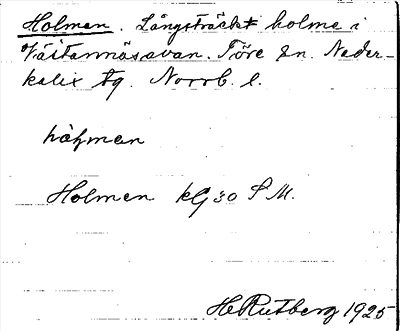 Holmen. Långsträckt holme i
Västannäsavan. Töre sn. Neder-
kalix tg. Norrb. l.
Holmen kG 30 S M.
H Rutberg 1925